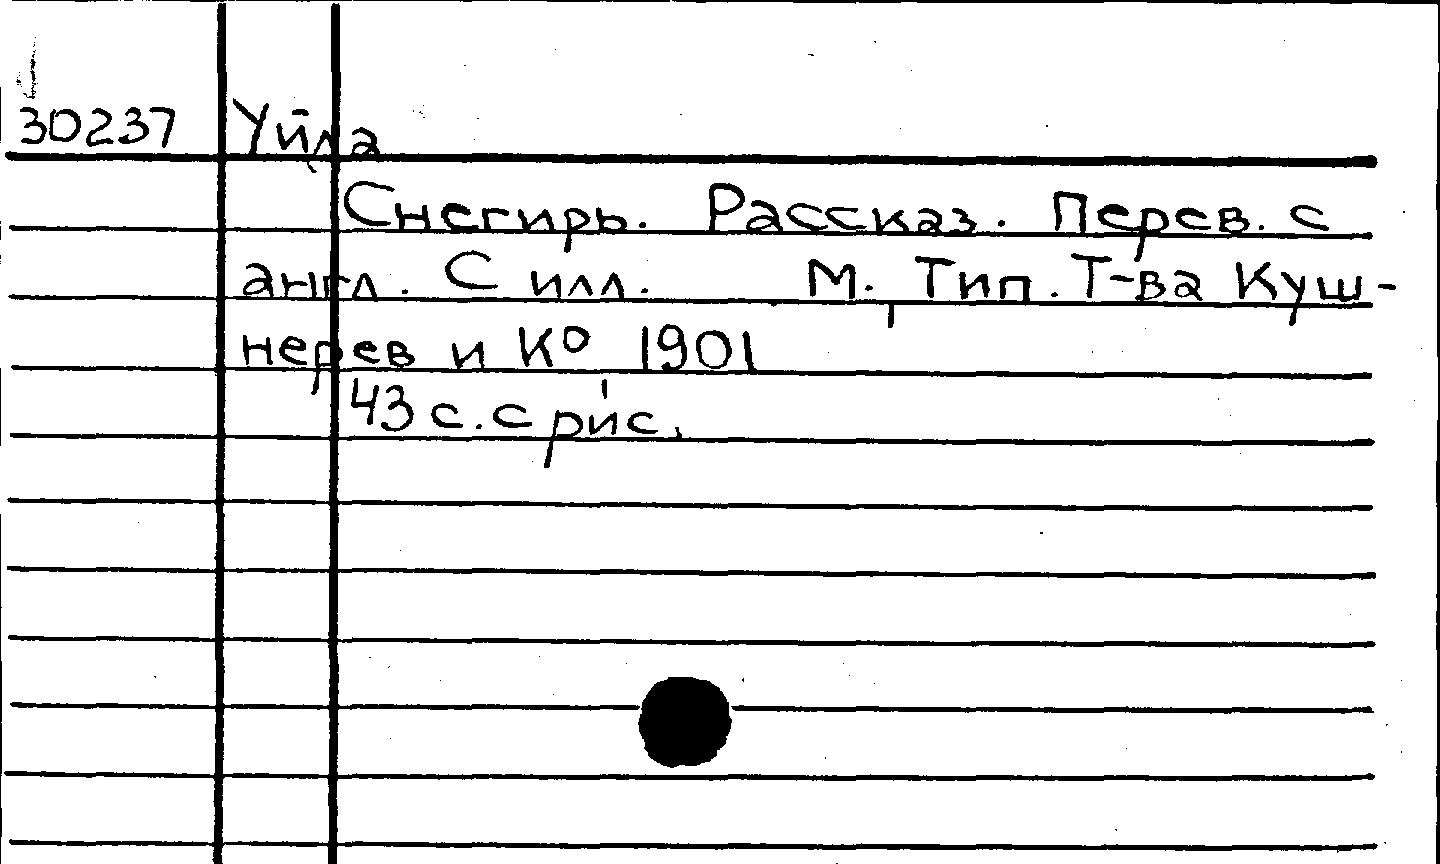 30237 Уйда
Снегирь. Рассказ. Перев. с
англ. С илл. М. Тип. Т-ва Куш-
нерев и К° 1901
43 с. с рис.